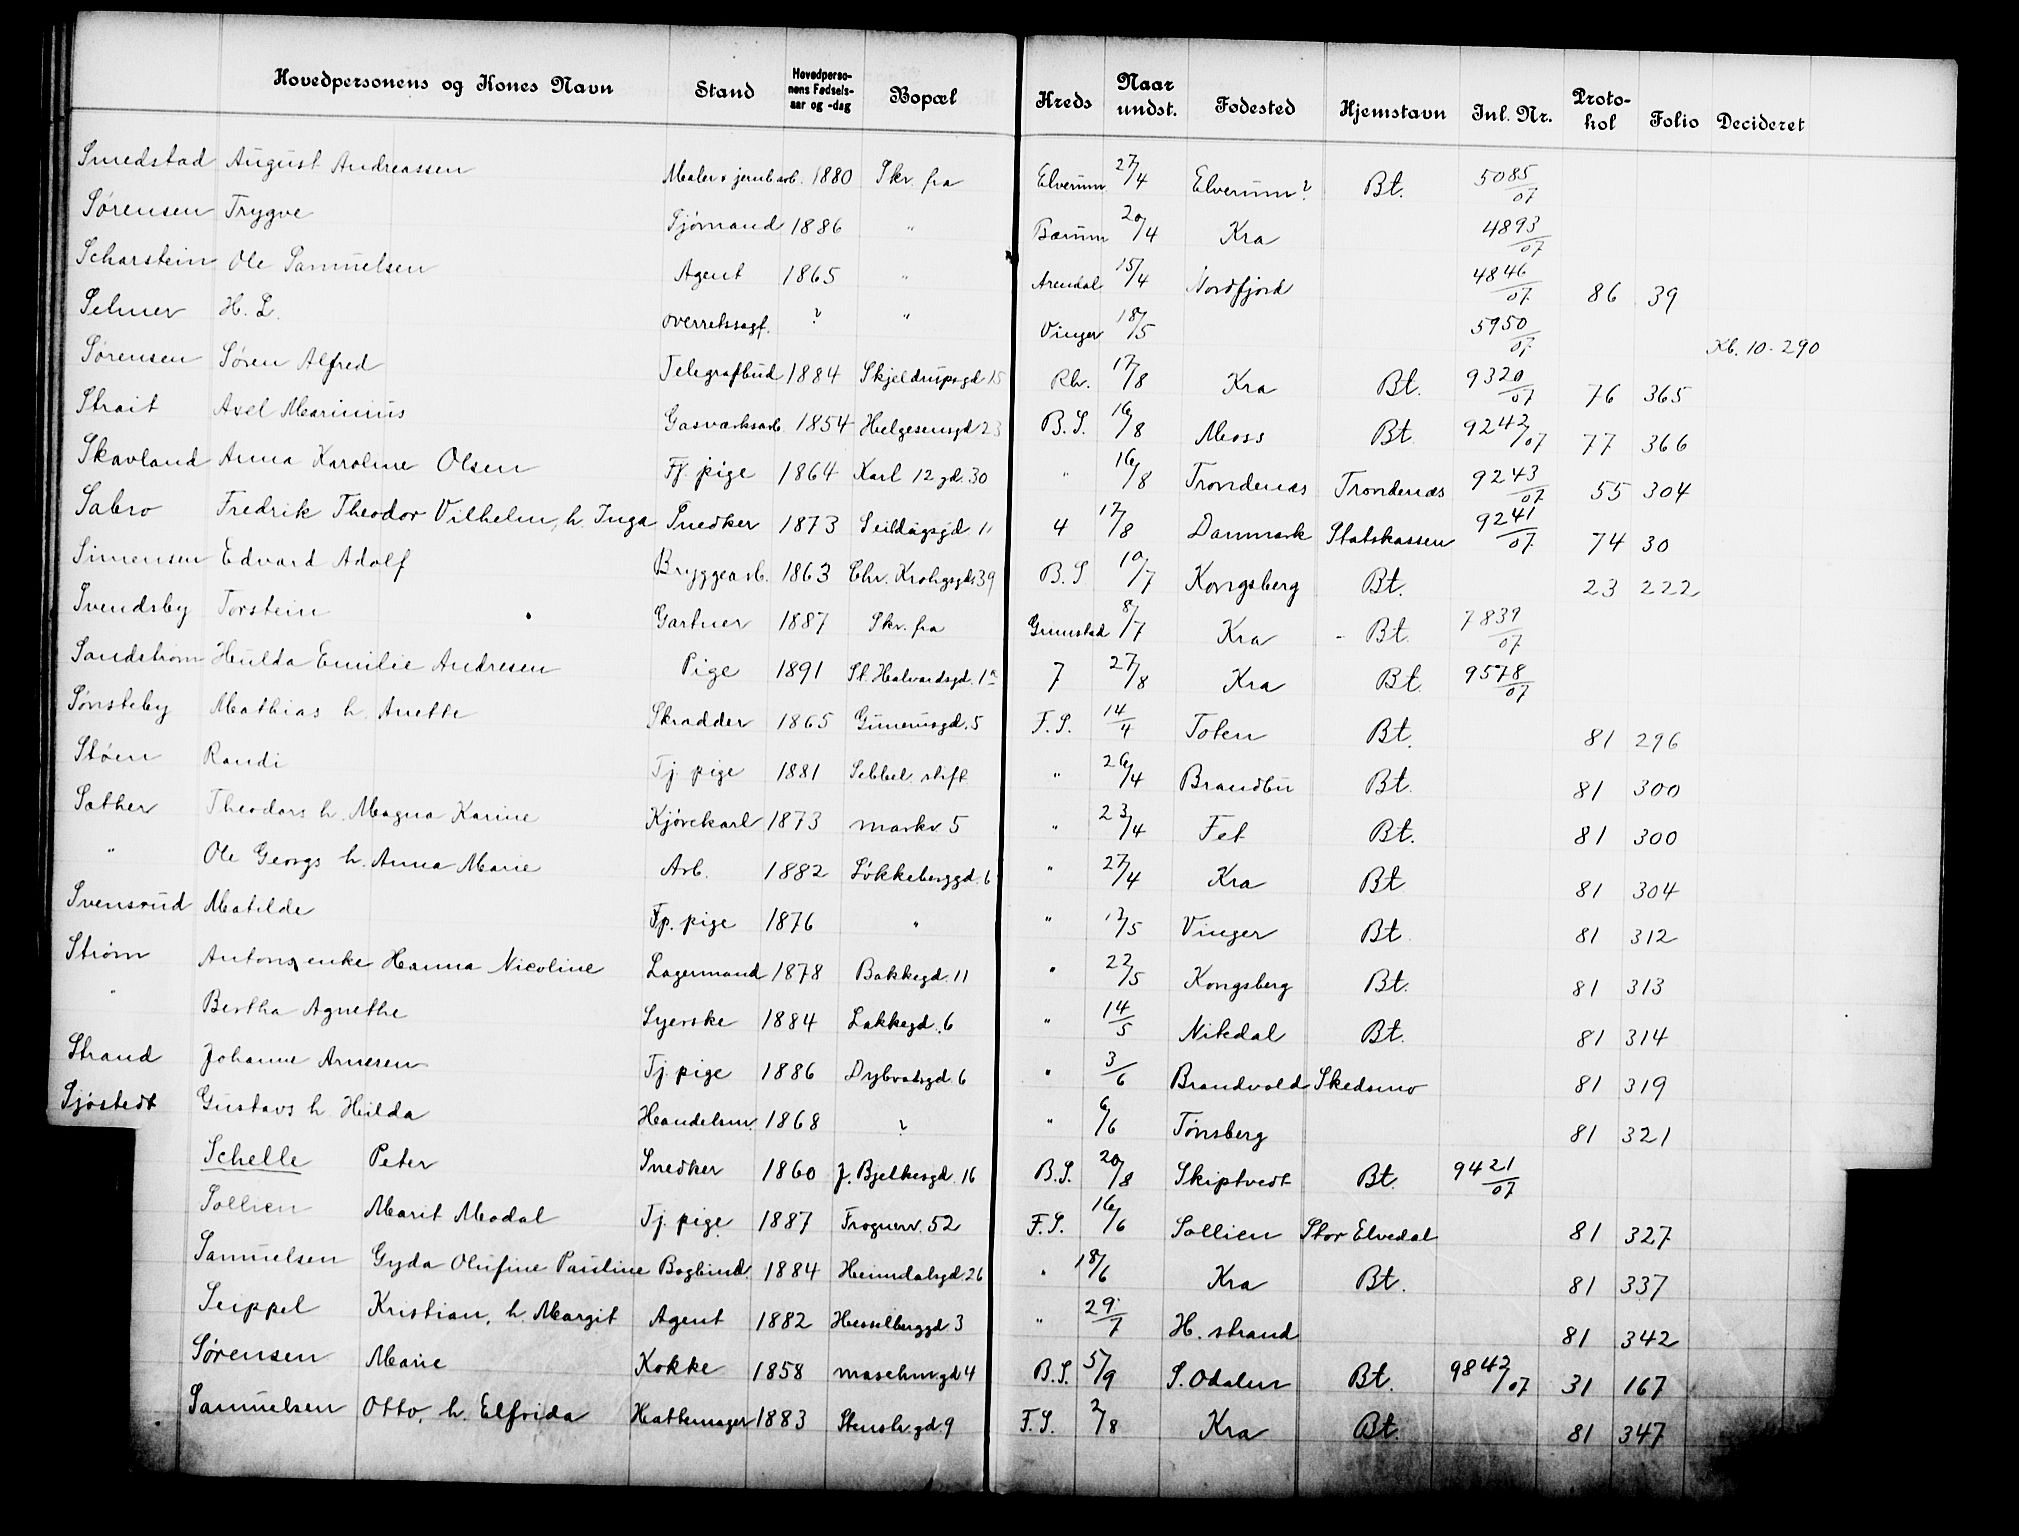 Hovedpersonens og Kones Navn Stand Hovedpersonens Fødselsaar og -dag Bopæl Kreds Naar undst. Fødested Hjemstavn Inl. Nr. Protokol Folio Decideret
Smedstad August Andreassen Maler & jernbarb. 1880 Skr. fra Elverum 27/4 Elverum? Bt. 5085/07
Sørensen Trygve Sjømand 1886 " Bærum 20/4 Kra 4893/07
Scharstein Ole Samuelsen Agent 1865 " Arendal 15/4 Nordfjord 4846/07 86 39
Selmer H. L. overretssagf. ? " Vinger 18/5 5950/07 Kb. 10-290
Sørensen Søren Alfred Telegrafbud 1884 Skjeldrupsgd 15 Rh. 17/8 Kra Bt. 9320/07 76 365
Strait Axel Marinius Gasværksarb. 1854 Helgesensgd 23 B.S. 16/8 Moss Bt. 9242/07 77 366
Skavland Anna Karoline Olsen Tj. pige 1864 Karl 12 gd. 30 " 16/8 Trondenæs Trondenæs 9243/07 55 304
Sabro Fredrik Theodor Vilhelm, h. Inga Snedker 1873 Seilduigsgd 11 4 17/8 Danmark Statskassen 9241/07 74 30
Simensen Edvard Adolf Bryggearb. 1863 Chr. Krohgsgd 39 B.S 10/7 Kongsberg Bt. 23 222
Svendsby Torstein Gartner 1887 Skr. fra Grimstad 8/7 Kra - Bt. 7839/07
Sandstrøm Hulda Emilie Andresen Pige 1891 St. Halvardsgd. 1a 7 27/8 Kra Bt. 9578/07
Sønsteby Mathias h. Anette Skrædder 1865 Gunerusgd. 5 F.S. 14/4 Toten Bt. 81 296
Støen Randi Tj. pige 1881 Sebbel. stift " 26/4 Brandbu Bt. 81 300
Sæther Theodors h. Magna Karine Kjørekarl 1873 Markv 5 " 23/4 Fet Bt. 81 300
" Ole Georgs h. Anna Marie Arb. 1882 Løkkeberggd. 6 " 27/4 Kra Bt 81 304
Svensrud Matilde Tj. pige 1876 " " /5 Vinger Bt 81 312
Strøm Antons enke Hanna Nicoline Lagermand 1878 Bakkegd. 11 " 22/5 Kongsberg Bt. 81 313
" Bertha Agnethe Syerske 1884 Lakkegd. 6 " 14/5 Nitedal Bt. 81 314
Strand Johanne Arnesen Tj. pige 1886 Dybvadsgd. 6 " 3/6 Brandvold Skedsmo 81 319
Sjøstedt Gustavs h Hilda Handelsm. 1868 ? " 6/6 Tønsberg 81 321
Schelle Peter Snedker 1860 J. Bjelkesgd. 16 B.S. 20/8 Skiptvedt Bt. 9421/07
Sollien Marit Modal Tj. pige 1887 Frognerv. 52 F.S. 16/6 Sollien Stor Elvedal 81 327
Samuelsen Gyda Olufine Pauline Bogbind. 1884 Heimdalsgd. 26 " 18/6 Kra Bt. 81 337
Seippel Kristian, h. Margit Agent 1882 Hesselberggd 3 " 29/7 H. strand 81 342
Sørensen Marie Kokke 1858 Maschingd 4 B.S. 5/9 S. Odalen Bt. 9842/07 31 167
Samuelsen Otto, h. Elfrida Hattemager 1883 Stensb. gd. 9 F.S. 2/8 Kra Bt. 81 347